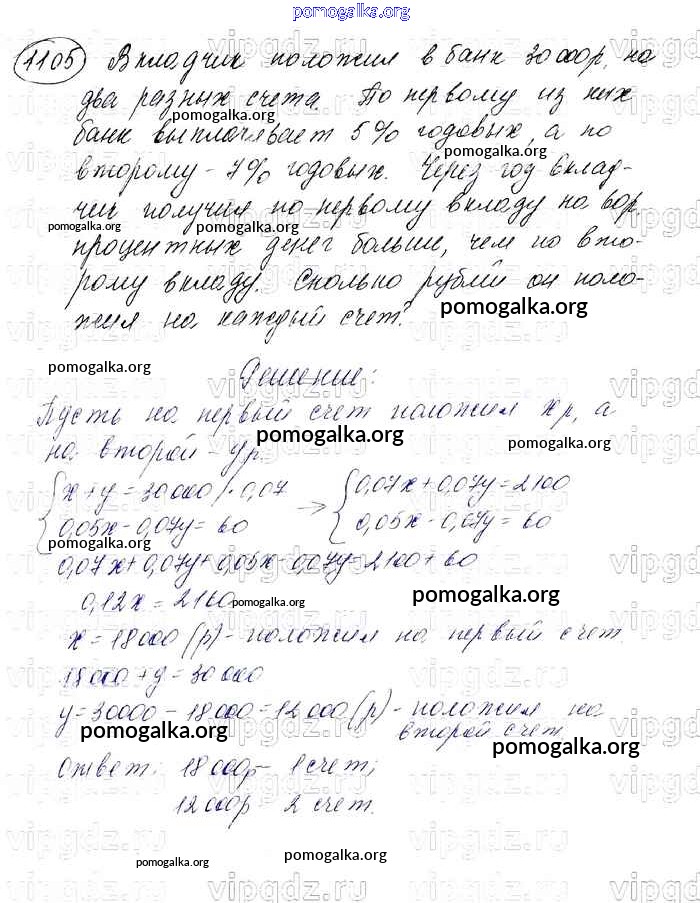 pomogalka.org
1105 Вкладчик положил в банк 30 000р. на
два разных счета. По первому из них
pomogalka.org
банк выплачивает 5% годовых, а по
pomogalka.org
второму - 7% годовых. Через год вклад-
чик получил по первому вкладу на 60р.
pomogalka.org pomogalka.org
процентных денег больше, чем по вто-
рому вкладу. Сколько рублей он поло-
pomogalka.org
жил на каждый счет?
pomogalka.org
Решение:
Пусть на первый счет положил х р, а
pomogalka.org pomogalka.org
на второй - у р.
{ x + y = 30 000 | · 0,07 → { 0,07x + 0,07y = 2100
0,05x - 0,07y = 60 0,05x - 0,07y = 60
pomogalka.org
0,07x + 0,07y + 0,05x - 0,07y = 2100 + 60
0,12x = 2160
pomogalka.org pomogalka.org
x = 18 000 (р) - положил на первый счет.
18 000 + y = 30 000
y = 30000 - 18 000 = 12 000 (р) - положил на
второй счет.
pomogalka.org pomogalka.org
ответ: 18 000р - 1 счет;
12 000р - 2 счет.
pomogalka.org pomogalka.org
vipgdz.ru